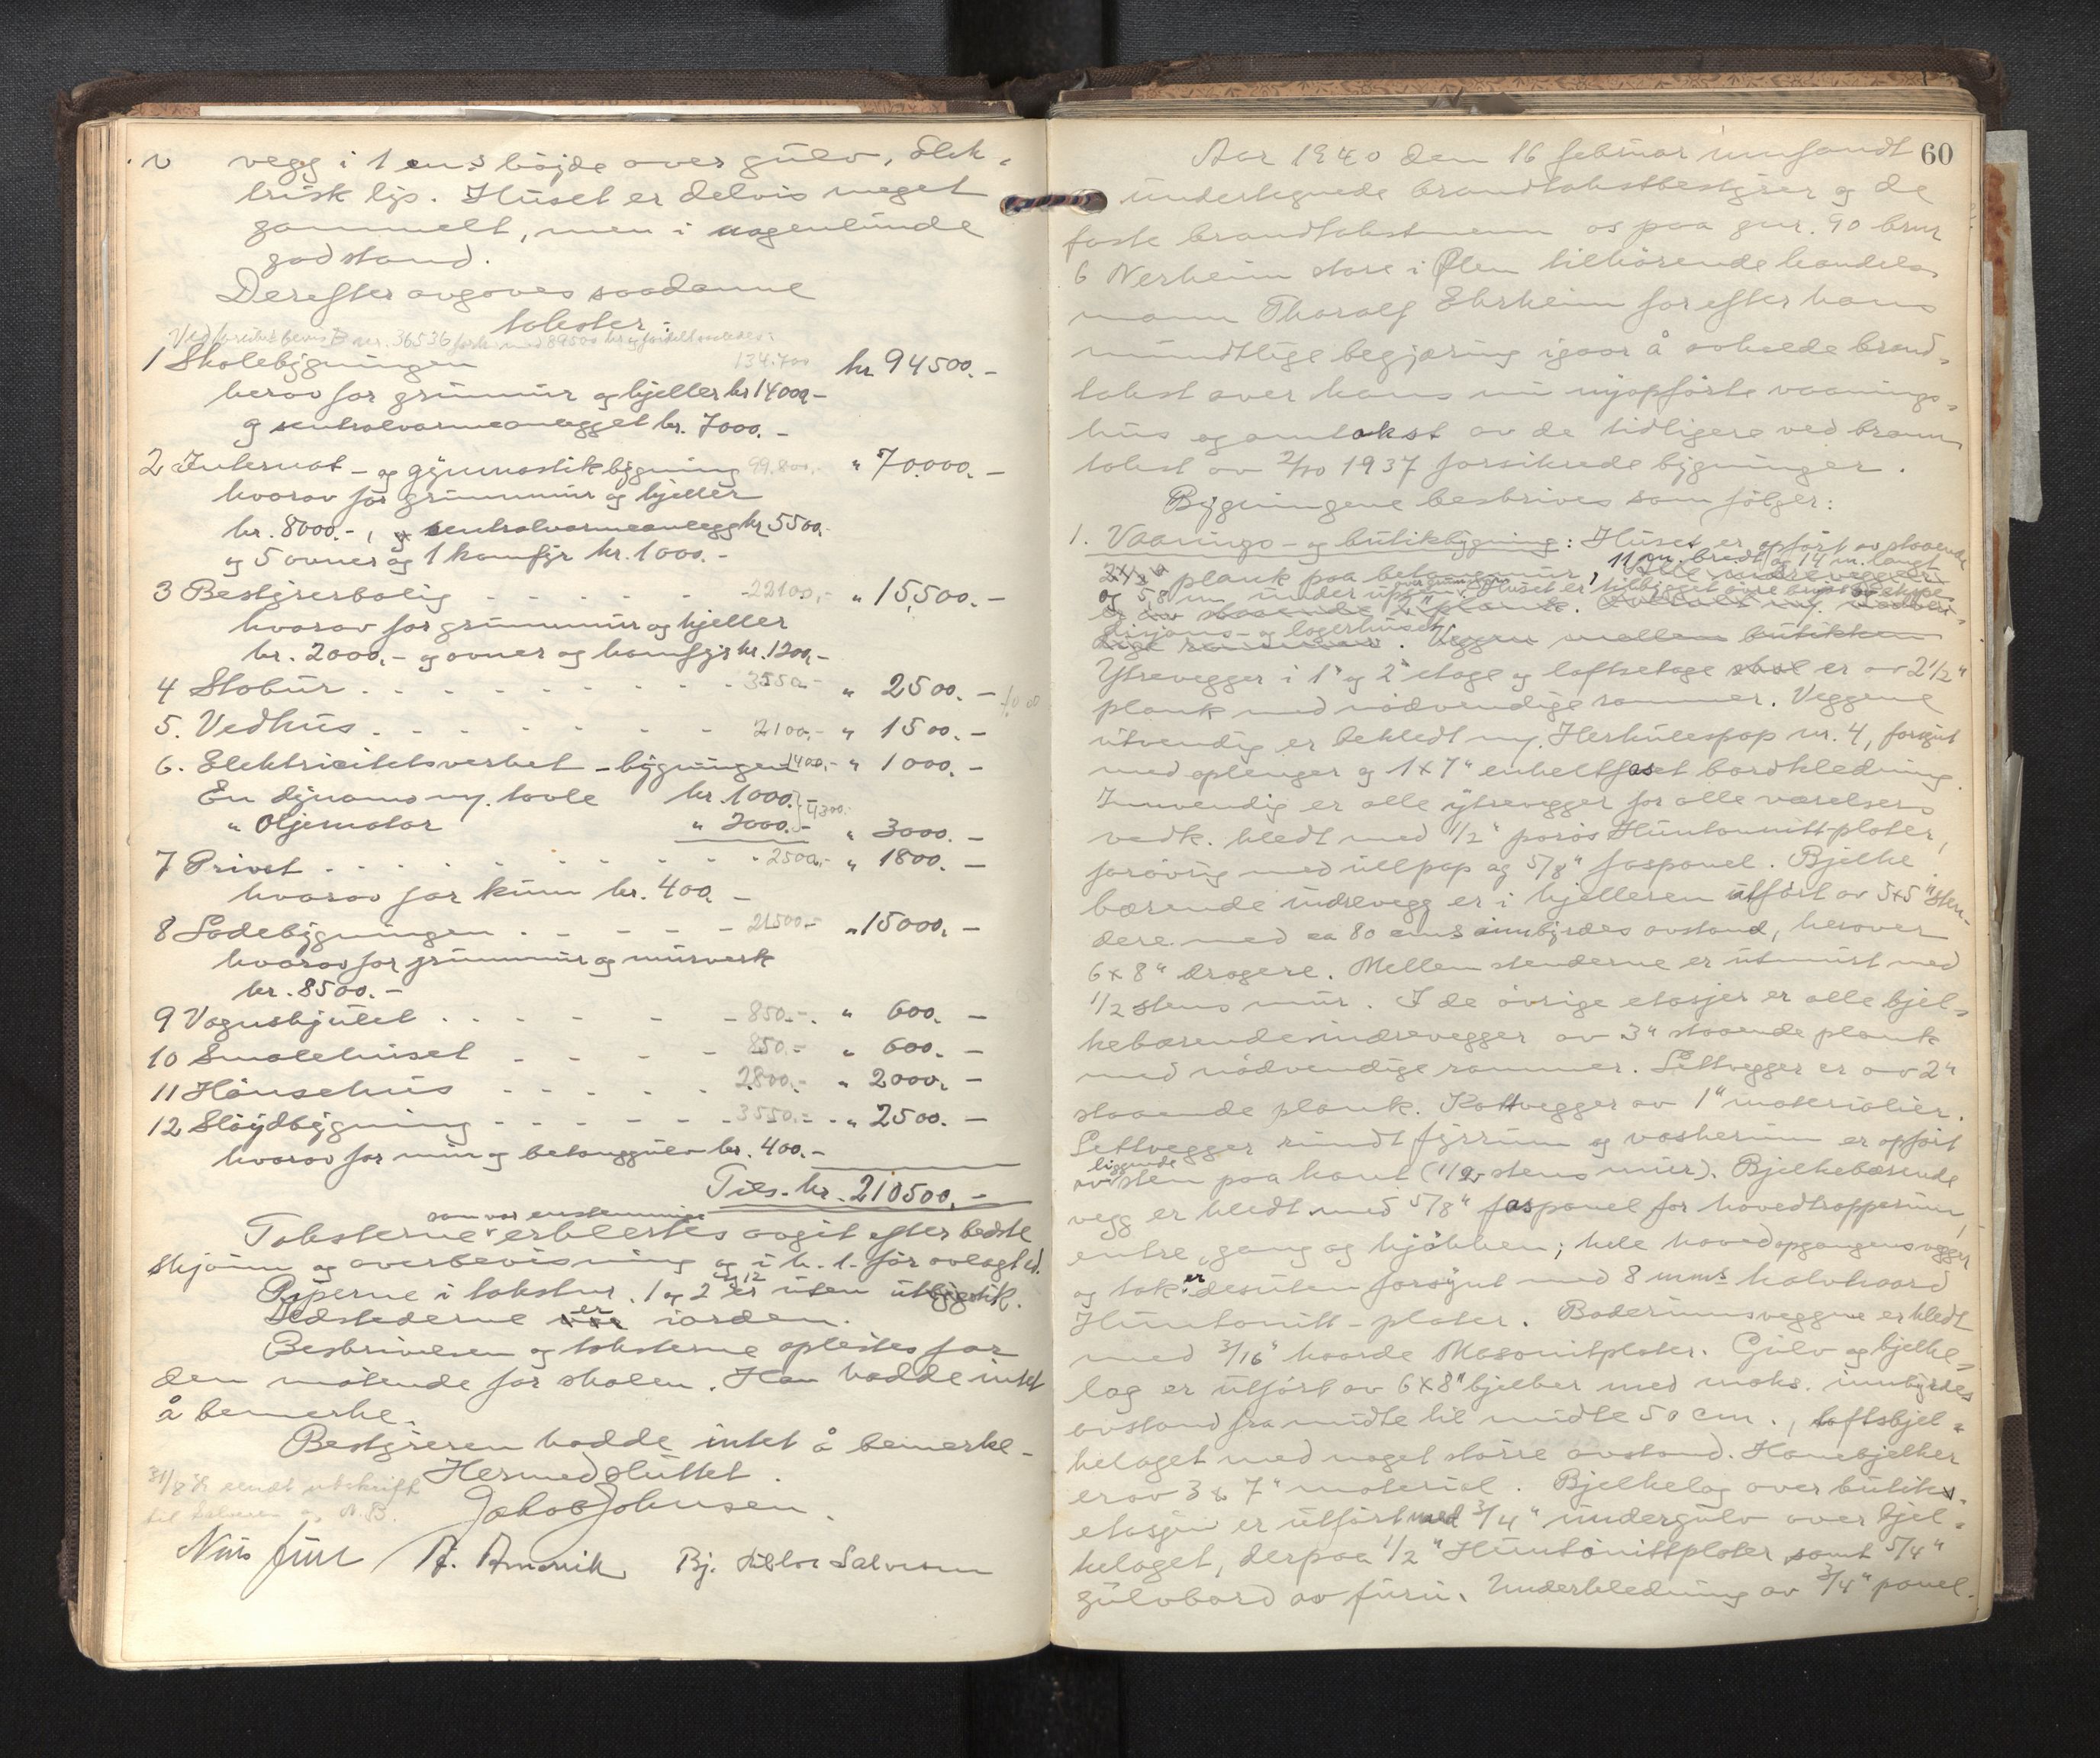 v vegg i 1 cms høide over gulv, elek-
trisk lys. Huset er delvis meget
gammelt, men i nogenlunde
god stand.
Derefter avgaves saadanne
takster:
nr. 36536
1 Skolebygningen 134.700 kr 94500.-
herav for grunmur og kjeller kr 14000,-
og sentralvarmeanlegget kr. 7000.-
2 Internat- og gymnastikbygning 99.800,- " 70.000.-
hvorav for grunnmur og kjeller
kr. 8000.-, og sentralvarmeanlegg kr 5500,-
og 5 ovner og 1 komfyr kr. 1000.-
3 Bestyrerbolig - - - - - 22100,- " 15,500.-
hvorav for grunnmur og kjeller
kr. 2000,- og ovner og komfyr kr. 1200,-
4 Stabur . - - - - - - - 3550.- " 2500.-
5. Vedhus . - - - - - - 2100,- " 1500.-
6. Elektricitetsverket - bygningen 1400,- " 1000.-
En dynamo m/ tavle kr. 1000.-
" Oljemotor " 2000.- 4300.- " 3000.-
7 Privet . - - - - - - - 2500,- " 1800.-
hvorav for kum kr. 400,-
8 Ladebygningen . - - - - 21500.- " 15000.-
hvorav for grunnmur og murverk
kr. 8500.-
9 Vognskjulet . - - - - - 850.- " 600.-
10 Smalehuset - - - - - 850.- " 600.-
11 Hønsehus - - - - - 2800.- " 2000.-
12 Sløydbygning - - - - - 3550.- " 2500.-
hvorav for mur og betonggulv kr. 400.-
Tils. kr. 210500.-
som var enstemmige
Taksterne erklertes avgit efter bedste
skjønn og overbevisning og i h. t. før avlagt ed.
Piperne i takstnr. 1 og 2 og 12 er uten utbyggstik.
Ildstederne er i orden.
Beskrivelsen og taksterne oplestes for
den møtende for skolen. Han hadde intet
å bemerke.
Bestyreren hadde intet å bemerke.
Hermed sluttet.
31/8 38 sendt utskrift
til Salvesen og N.B.
Jakob Johnsen.
60
Aar 1940 den 16 februar innfandt
undertegnede brandtakstbestyrer og de
faste brandtakstmenn os paa gnr. 90 brnr
6 Nerheim store i Ølen tilhørende handels-
mann Tharalf Ehrheim for efter hans
mundtlige begjæring igaar å avholde brand-
takst over hans nu nyopførte vaanings-
hus og omtakst av de tidligere ved brann
takst av 2/10 1937 forsikrede bygninger.
Bygningene beskrives som følger:
1. Vaanings- og butikbygning: Huset er opført av staaende
11 m. bredt og 14 m. langt
plank paa betongmur,
og 5,8 m under
over grunnmur. Huset er tilbygget øvre
og lagerhuset.
Ytrevegger i 1' og 2' etage og loftsetage er av 2½"
plank med nødvendige rammer. Veggene
utvendig er bekledt m/ Herkulespap nr. 4, forsynt
med oplenger og 1x7" enkeltfaset bordkledning.
Innvendig er alle ytrevegger for alle værelsers
vedk. kledt med ½" porøs Huntonnitt-plater,
forøvrig med ullpap og 5/8" faspanel. Bjelke
bærende indrevegg er i kjelleren utført av 5x5" sten-
dere med ca 80 cms innbyrdes avstand, herover
6x8" dragere. Mellem stenderne er utmurt med
1/2 stens mur. I de øvrige etasjer er alle bjel-
kebærende indrevegger av 3" staaende plank
med nødvendige rammer. Lettvegger er av 2"
staaende plank. Kottvegger av 1" materialier.
Lettvegger rundt fyrrum og vaskerum er opført
liggende
av sten paa kant (1/2 stens mur). Bjelkebærende
vegg er kledt med 5/8" faspanel for hovedtrapperum,
entre, gang og kjøkken; hele hovedopgangens vegger
og tak er desuten forsynt med 8 mms halvhaard
Huntonitt-plater. Baderumsveggne er kledt
med 3/16" haarde Masonitplater. Gulv og bjelke-
lag er utført av 6x8" bjelker med maks. innbyrdes
avstand fra midte til midte 50 cm., loftsbjel-
kelaget med noget større avstand. Hanebjelker
er av 3 x 7" material. Bjelkelag over butiks-
etasjen er utført med 3/4" undergulv over bjel-
kelaget, derpaa 1/2" Huntonittplater samt 5/4"
gulvbord av furu. Underkledning av 3/4" panel.